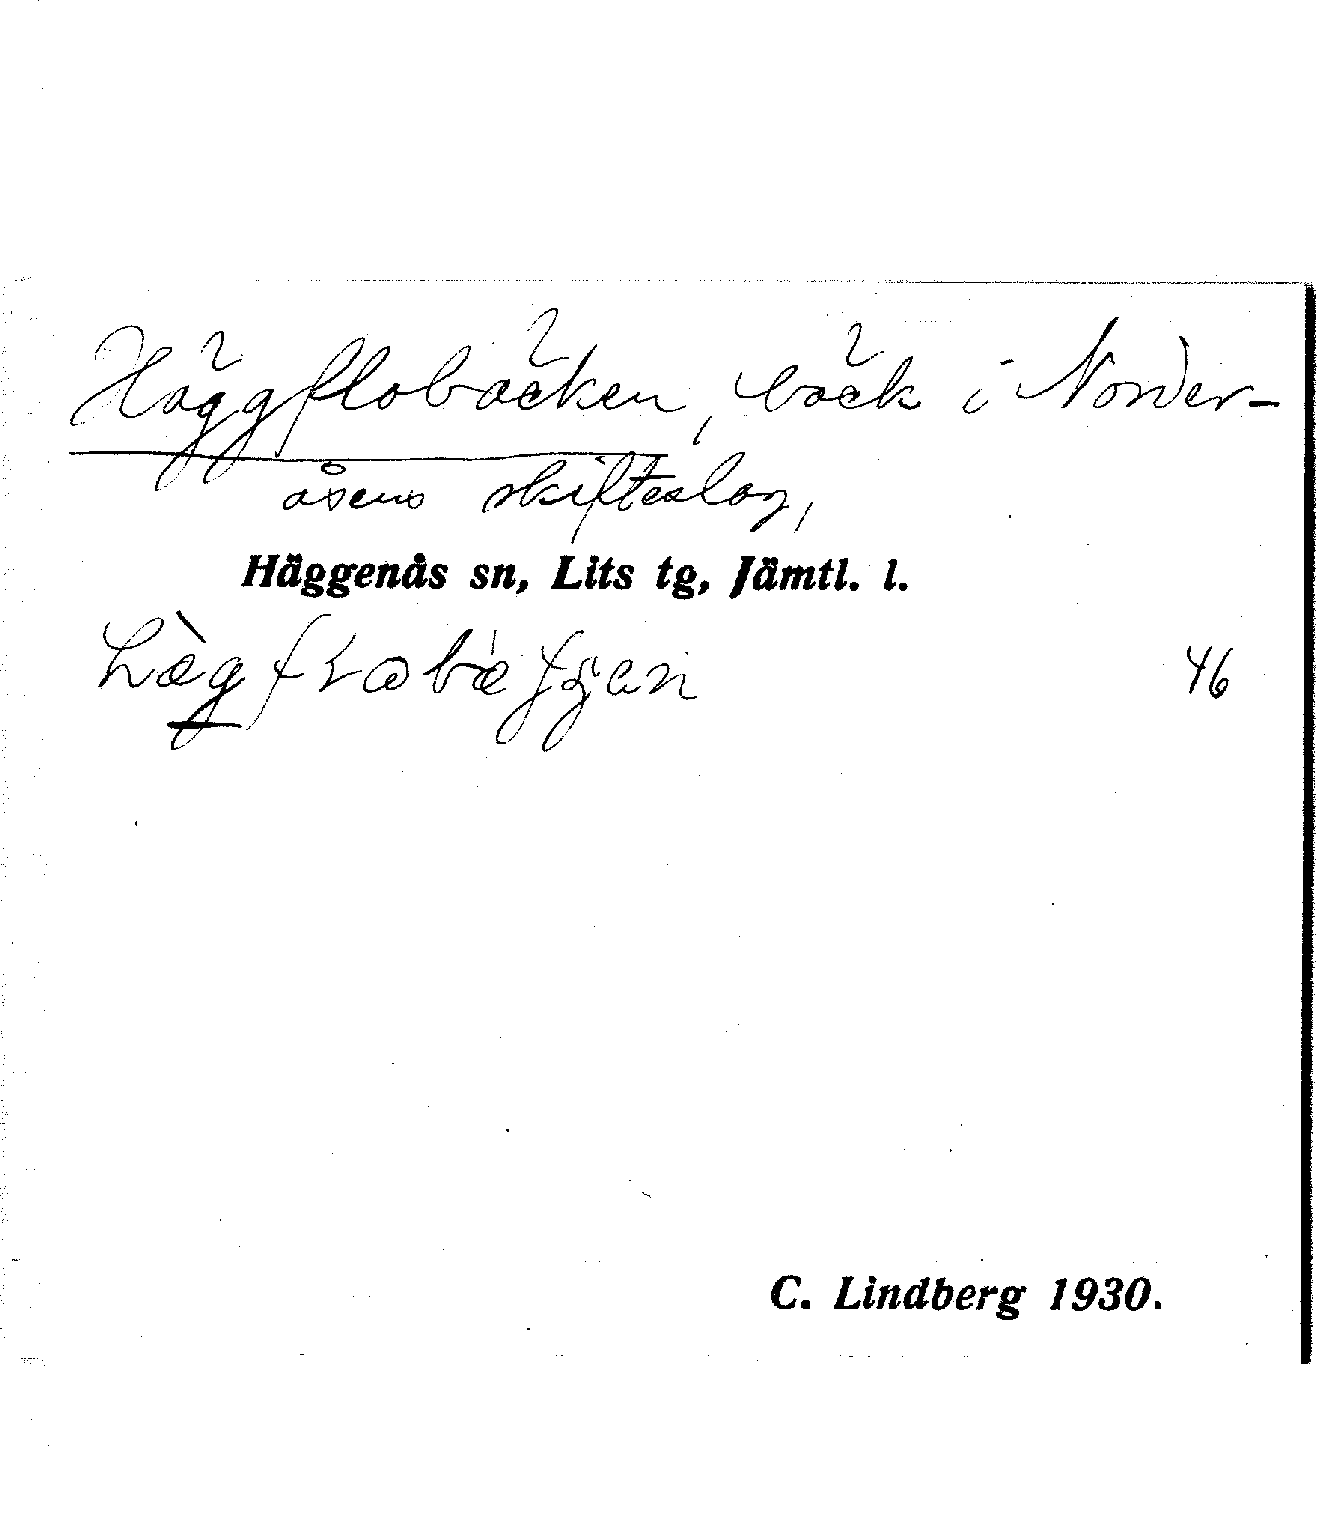 Häggflobäcken, bäck i Norder-
åsens skifteslag,
Häggenås sn, Lits tg, Jämtl. l.
46
C. Lindberg 1930.